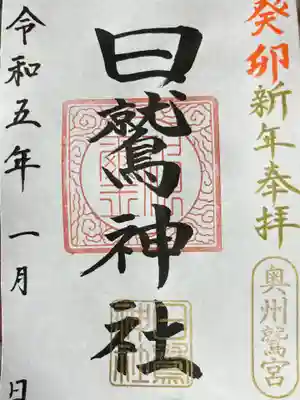 癸卯新年奉拝
奥州鷲宮
日鷲神社
令和五年一月 日